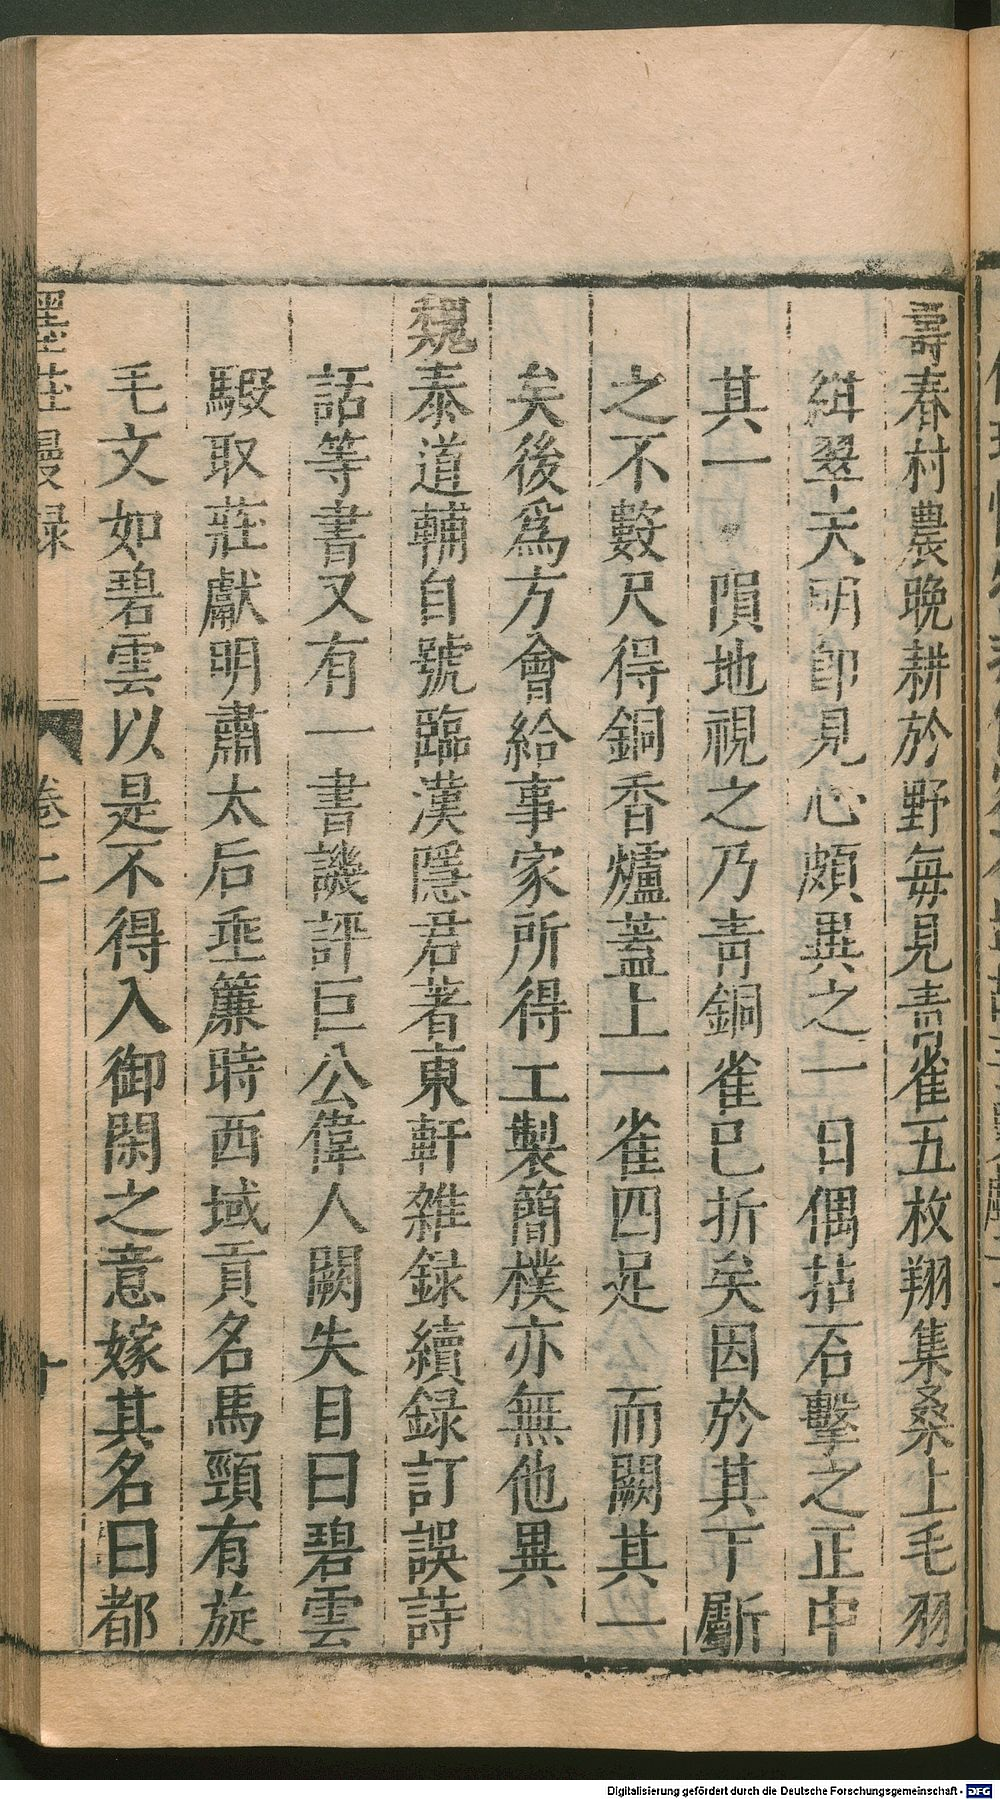 壽春村農晩耕於野毎見青雀五枚翔集桑上毛羽
緝翠天明卽見心頗異之一日偶拈石擊之正中
其一隕地視之乃靑銅雀已折矣因於其下斸
之不數尺得銅香爐蓋上一雀四足而闕其一
矣後爲方會給事家所得工製簡樸亦無他異
魏泰道輔自號臨漢隱君著東軒雑録續録訂誤詩
話等書又有一書譏評巨公偉人闕失目曰碧雲
騢取莊獻明肅太后垂簾時西域貢名馬頸有旋
毛文如碧雲以是不得入御閑之意嫁其名曰都
墨莊漫録 卷二
Digitalisierung gefördert durch die Deutsche Forschungsgemeinschaft - DFG